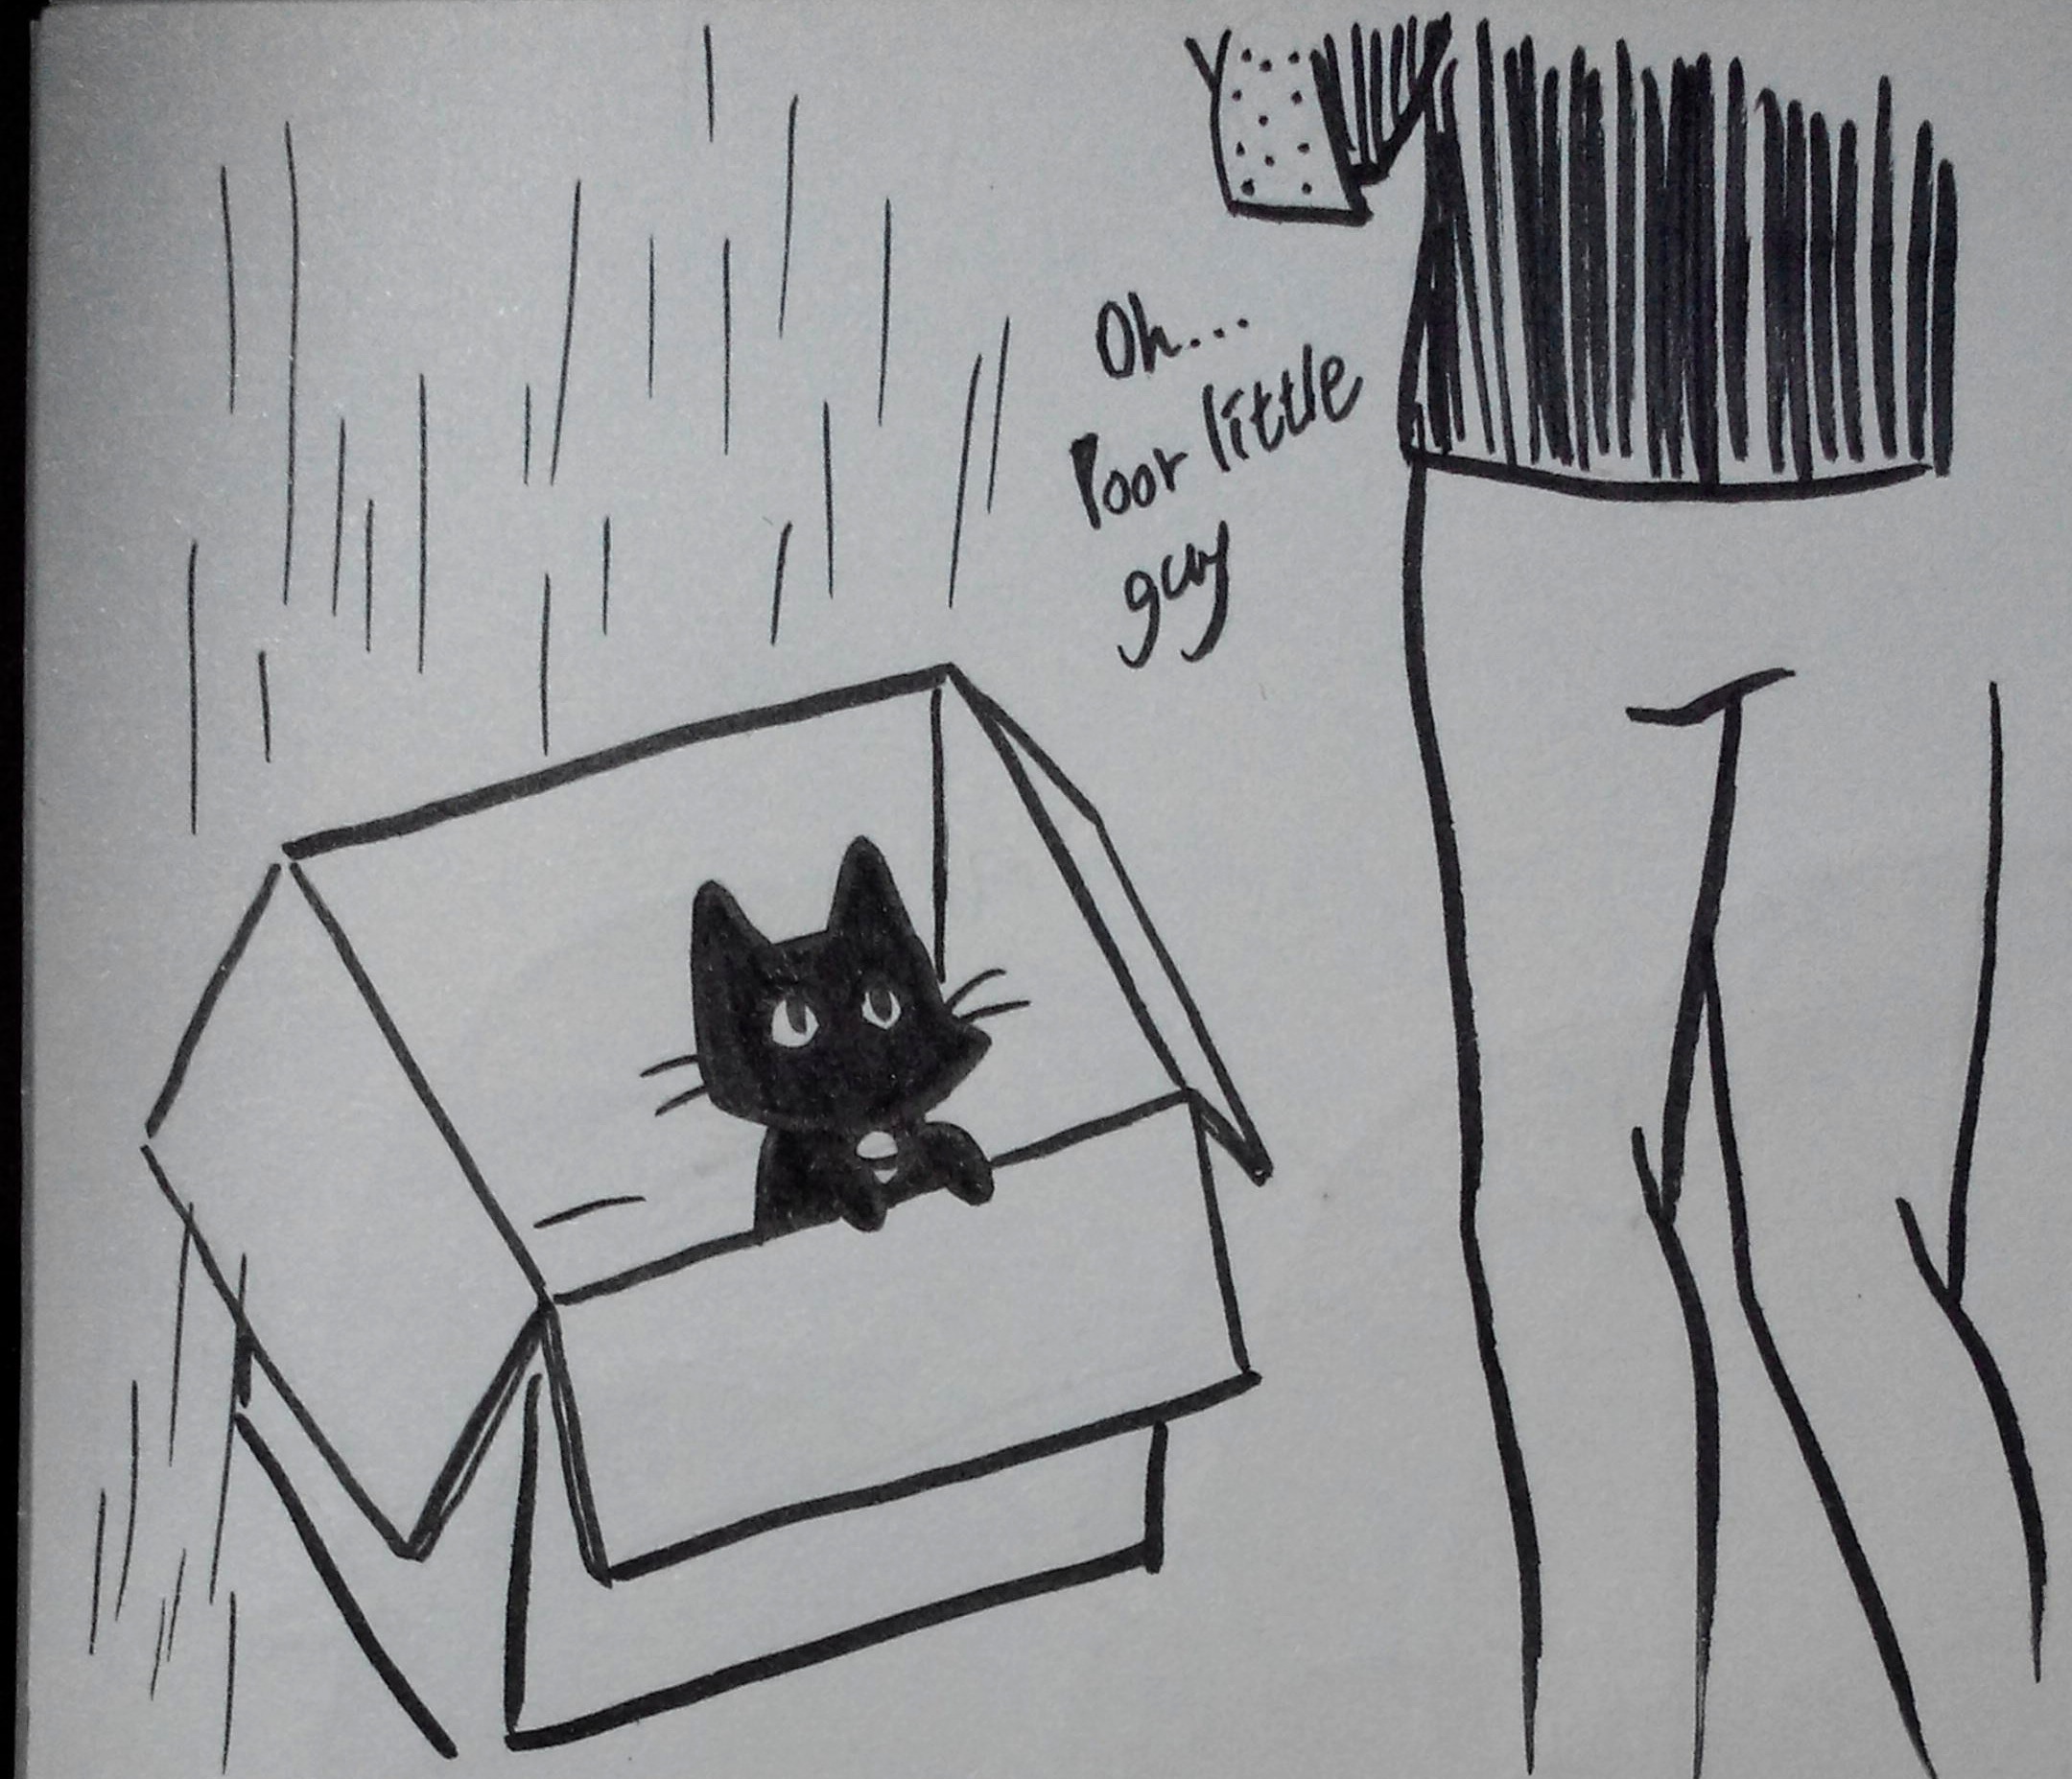 Oh...
Poor little
guy